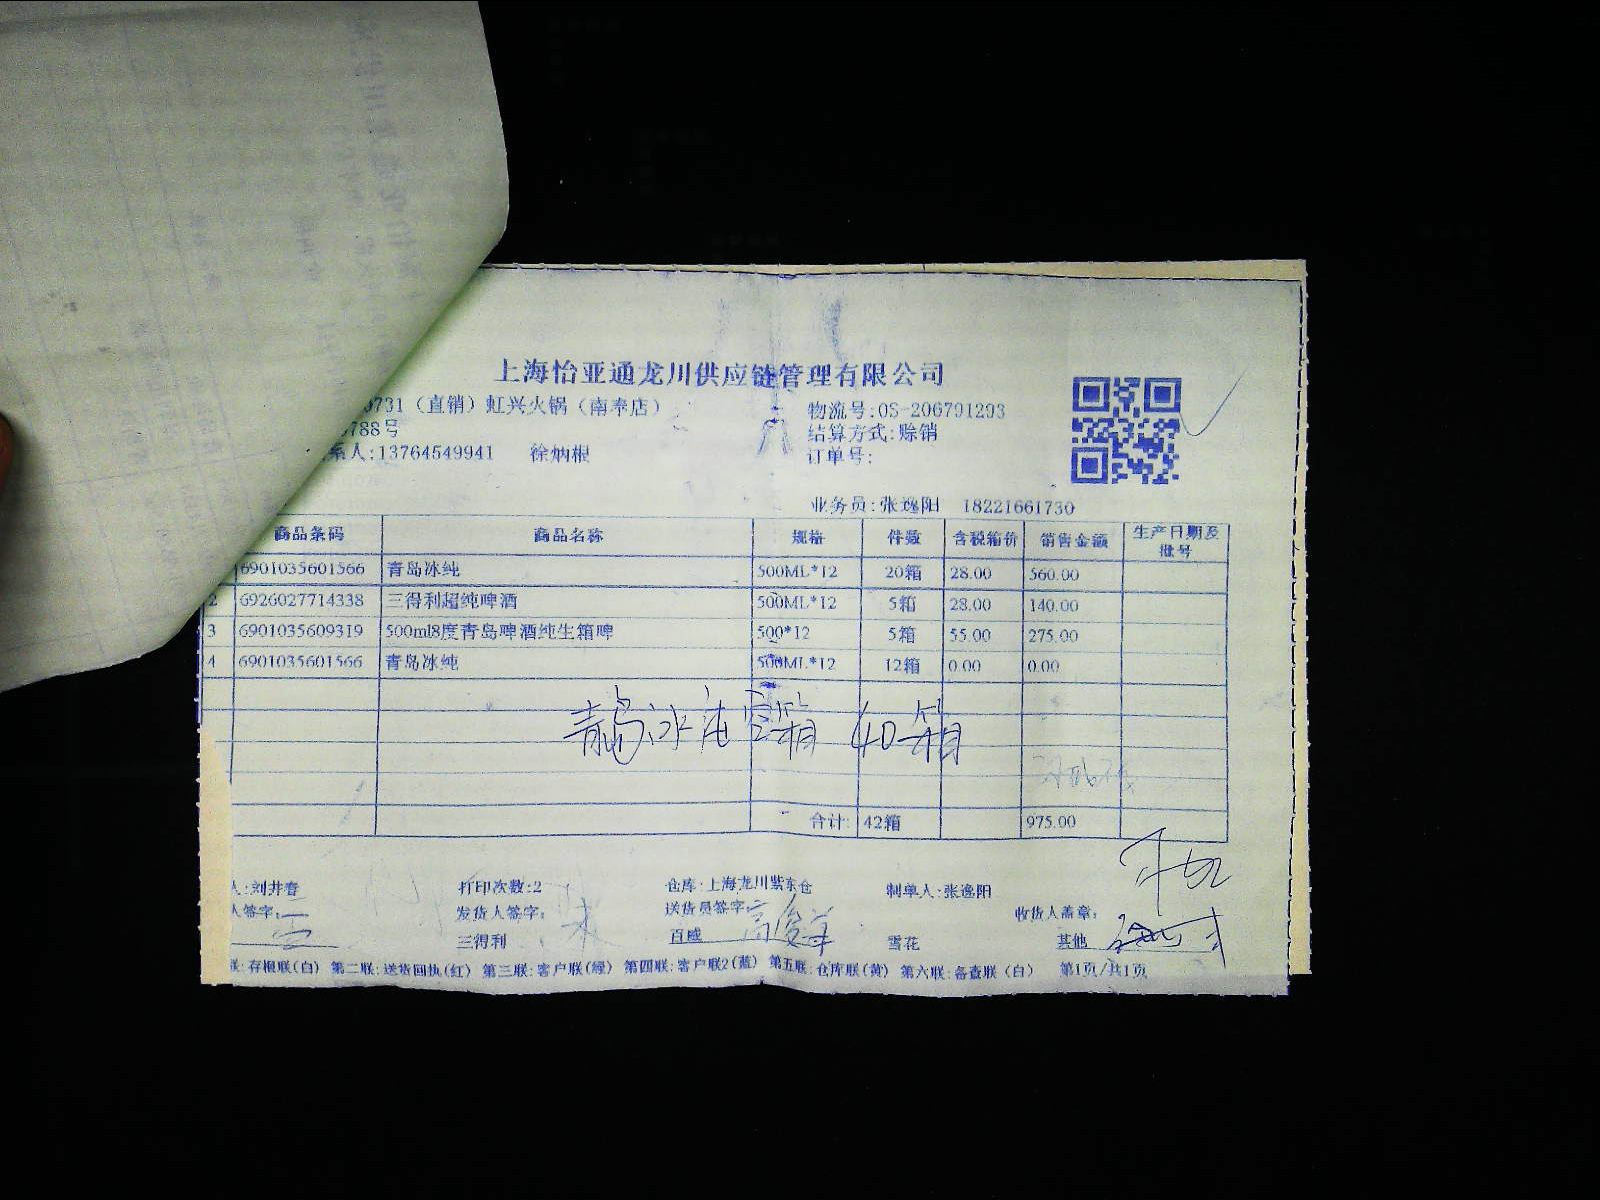 上海怡亚通龙川供应链管理有限公司
731（直销）虹兴火锅（南奉店） 物流号:OS-206791293
788号 结算方式:赊销
系人:13764549941 徐炳根 订单号:
业务员:张逸阳 18221661730
商品条码 商品名称 规格 件数 含税箱价 销售金额 生产日期及批号
6901035601566 青岛冰纯 500ML*12 20箱 28.00 560.00
2 6926027714338 三得利超纯啤酒 500ML*12 5箱 28.00 140.00
3 6901035609319 500ml8度青岛啤酒纯生箱啤 500*12 5箱 55.00 275.00
4 6901035601566 青岛冰纯 500ML*12 12箱 0.00 0.00
青岛冰纯空箱 40箱
合计: 42箱 975.00
人:刘井春 打印次数:2 仓库:上海龙川紫东仓 制单人:张逸阳
人签字: 发货人签字: 送货员签字: 收货人盖章:
三得利 百威 雪花 其他
联:存根联(白) 第二联:送货回执(红) 第三联:客户联(绿) 第四联:客户联2(蓝) 第五联:仓库联(黄) 第六联:备查联（白） 第1页/共1页